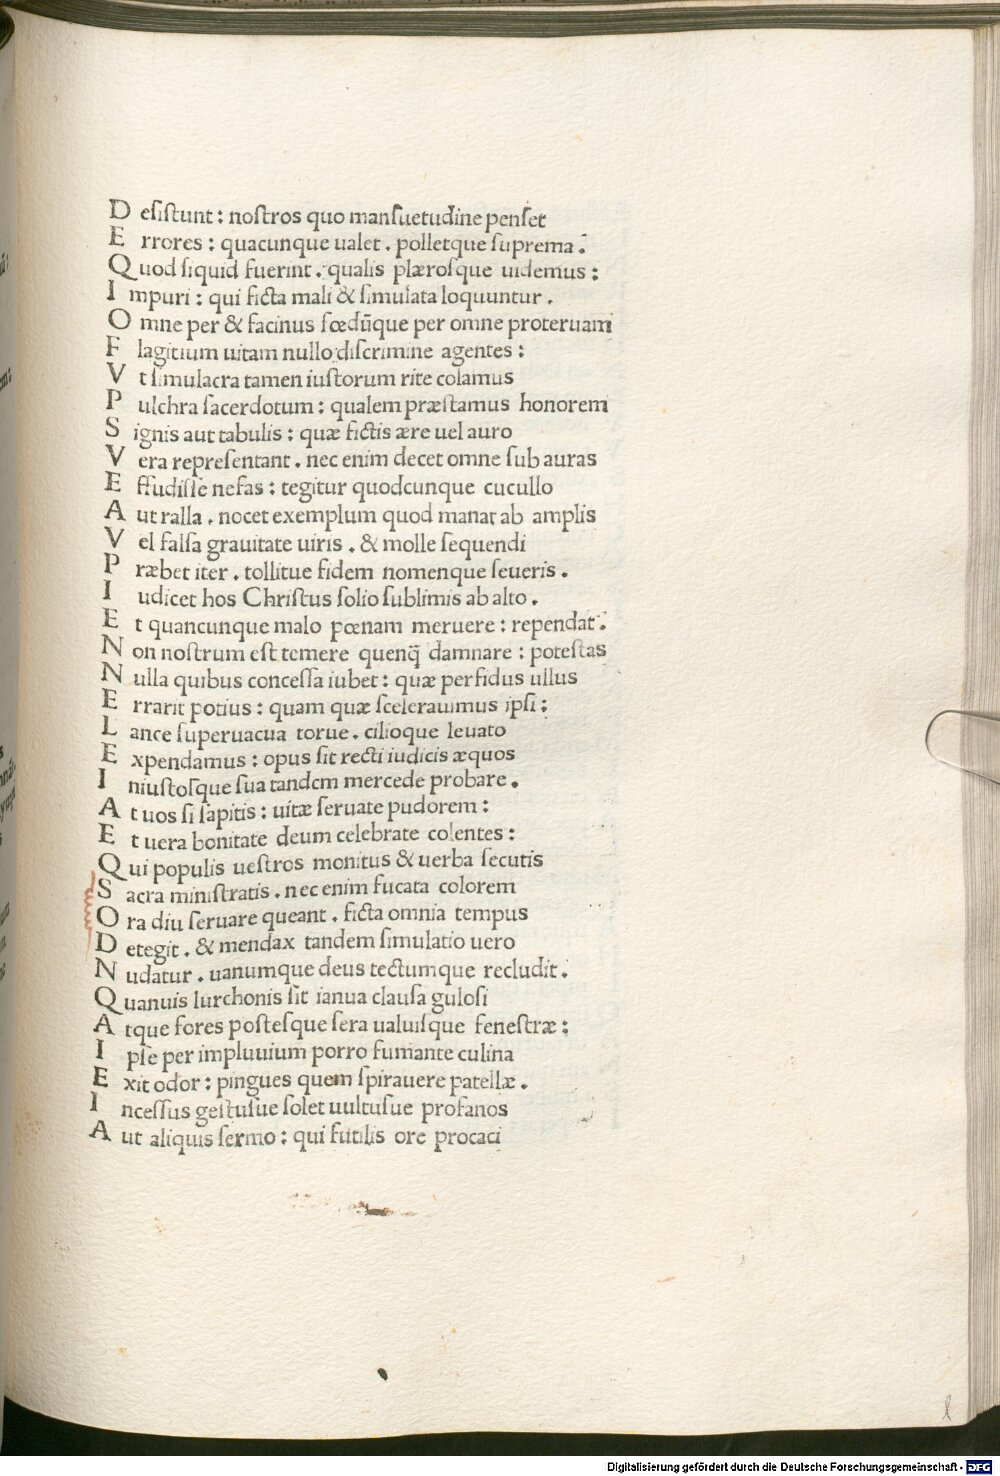 D esiſtunt : noſtros quo manſuetudine penſet
E rrores : quacunque ualet . polletque ſuprema .
Q uod ſiquid fuerint . qualis plæroſque uidemus :
I mpuri : qui ficta mali & ſimulata loquuntur .
O mne per & facinus fœdūque per omne proteruam
F lagitium uitam nullo diſcrimine agentes :
V t ſimulacra tamen iuſtorum rite colamus
P ulchra ſacerdotum : qualem præſtamus honorem
S ignis aut tabulis : quæ fictis ære uel auro
V era repreſentant . nec enim decet omne ſub auras
E ffudiſſe nefas : tegitur quodcunque cucullo
A ut ralla . nocet exemplum quod manat ab amplis
V el falſa grauitate uiris . & molle ſequendi
P ræbet iter . tollitue fidem nomenque ſeueris .
I udicet hos Chriſtus ſolio ſublimis ab alto .
E t quancunque malo pœnam meruere : rependat .
N on noſtrum eſt temere quenq̄ damnare : poteſtas
N ulla quibus conceſſa iubet : quæ perfidus ullus
E rrarit potius : quam quæ ſcelerauimus ipſi :
L ance ſuperuacua torue . cilioque leuato
E xpendamus : opus ſit recti iudicis æquos
I niuſtoſque ſua tandem mercede probare .
A t uos ſi ſapitis : uitæ ſeruate pudorem :
E t uera bonitate deum celebrate colentes :
Q ui populis ueſtros monitus & uerba ſecutis
S acra miniſtratis . nec enim fucata colorem
O ra diu ſeruare queant . ficta omnia tempus
D etegit . & mendax tandem ſimulatio uero
N udatur . uanumque deus tectumque recludit .
Q uanuis lurchonis ſit ianua clauſa guloſi
A tque fores poſteſque ſera ualuiſque feneſtræ :
I pſe per impluuium porro fumante culina
E xit odor : pingues quem ſpirauere patellæ .
I nceſſus geſtuſue ſolet uultuſue profanos
A ut aliquis ſermo : qui futilis ore procaci
l
Digitalisierung gefördert durch die Deutsche Forschungsgemeinschaft - DFG